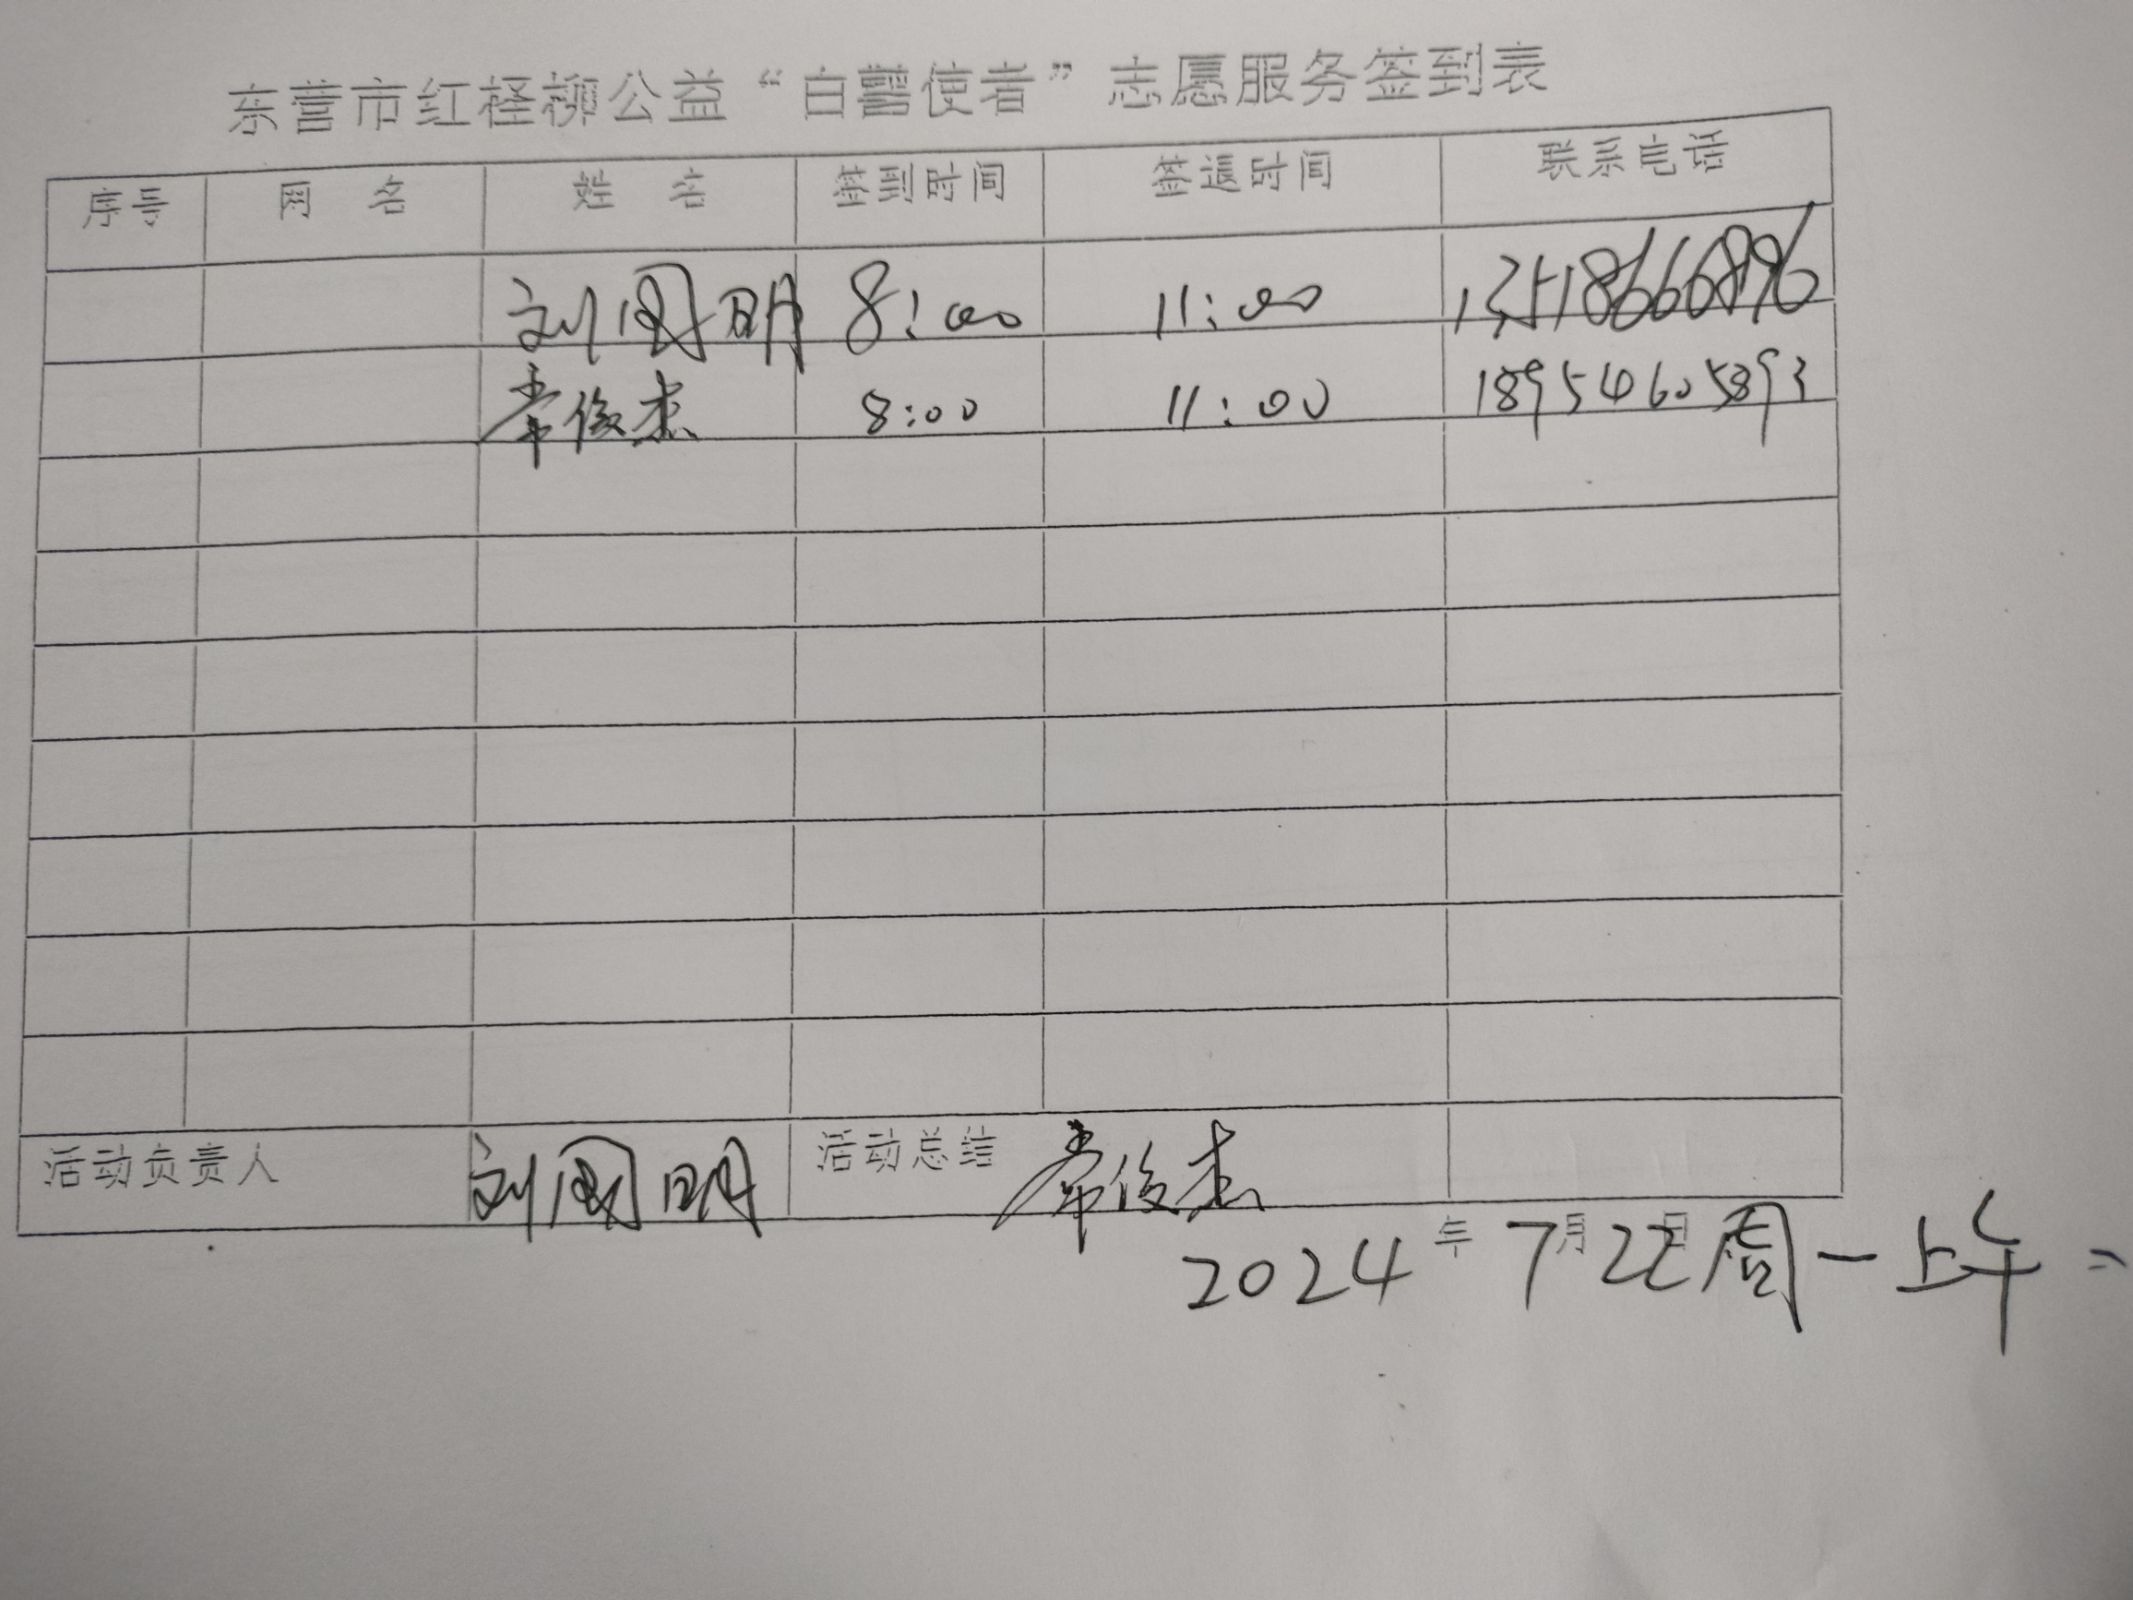 东营市红柽柳公益“白鹭使者”志愿服务签到表
序号 网 名 姓 名 签到时间 签退时间 联系电话
刘国明 8:00 11:00
常俊杰 8:00 11:00 18954605893
活动负责人 刘国明 活动总结 常俊杰
2024年7月22日周一上午